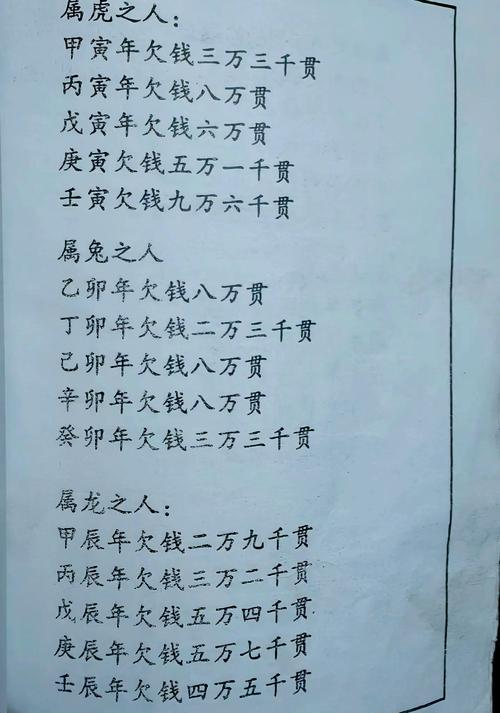 属虎之人：
甲寅年欠钱三万三千贯
丙寅年欠钱八万贯
戊寅年欠钱六万贯
庚寅欠钱五万一千贯
壬寅欠钱九万六千贯
属兔之人
乙卯年欠钱八万贯
丁卯年欠钱二万三千贯
己卯年欠钱八万贯
辛卯年欠钱八万贯
癸卯年欠钱三万三千贯
属龙之人：
甲辰年欠钱二万九千贯
丙辰年欠钱三万二千贯
戊辰年欠钱五万四千贯
庚辰年欠钱五万七千贯
壬辰年欠钱四万五千贯